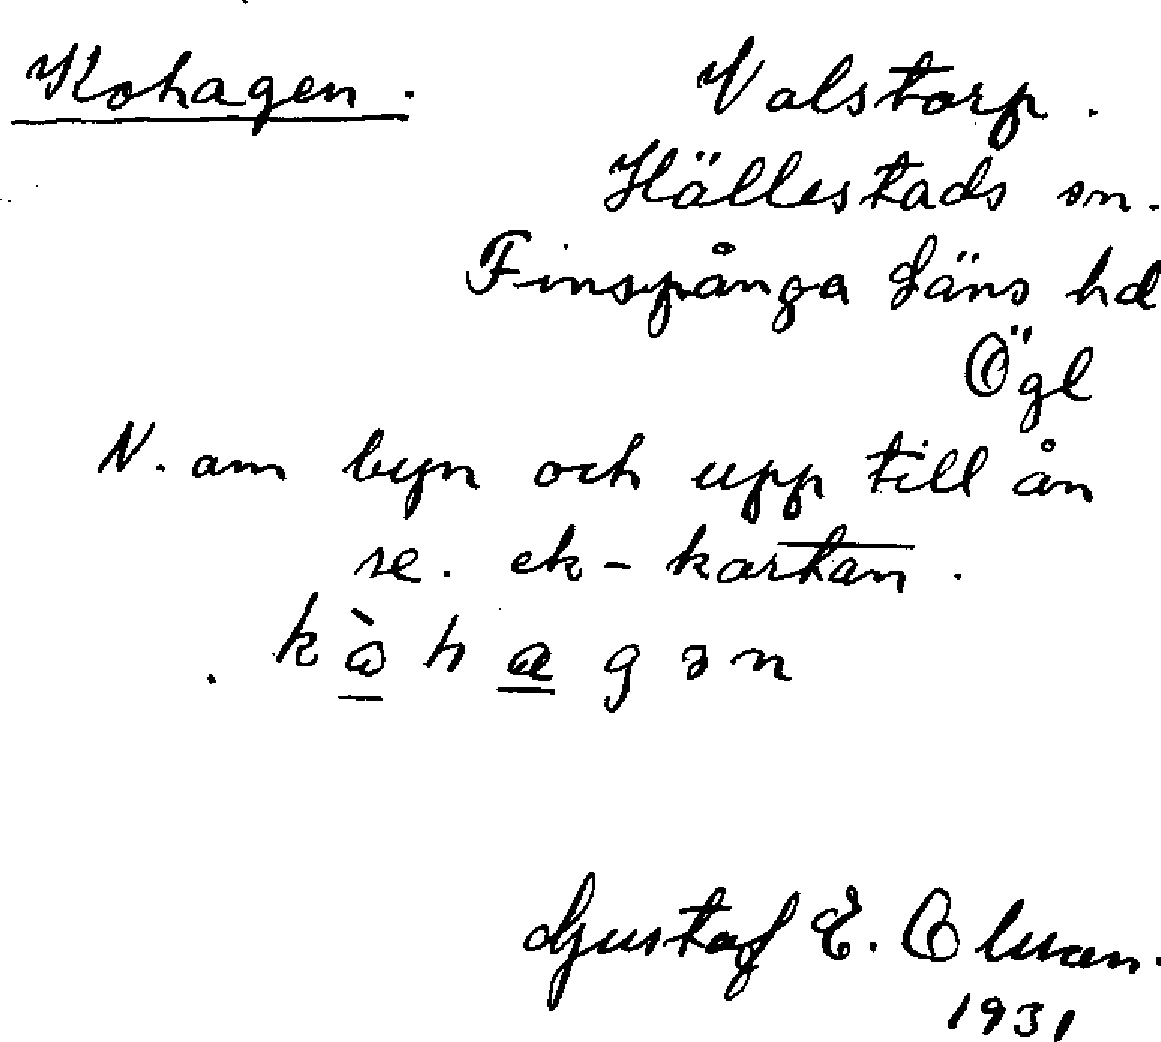 Kohagen. Valstorp.
Hällestads sn.
Finspånga Läns hd
Ögl
N. om byn och upp till ån
se. ek-kartan.
k ò h a g ə n
Gustaf E. Olman.
1931